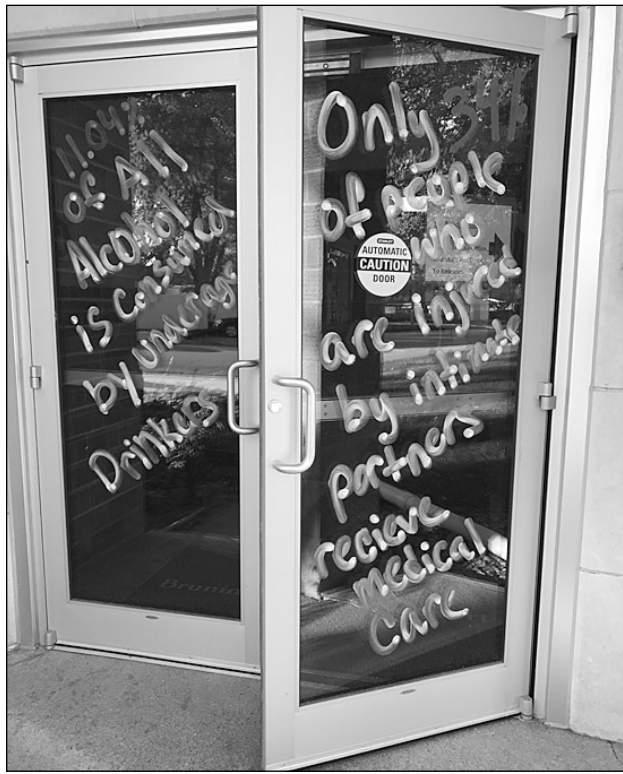 11.04%
of All
Alcohol
is consumed
by underage
Drinkers
Only 34%
of people
who
are injured
by intimate
partners
recieve
medical
care
STANLEY
AUTOMATIC
CAUTION
DOOR
To Release
Brunin